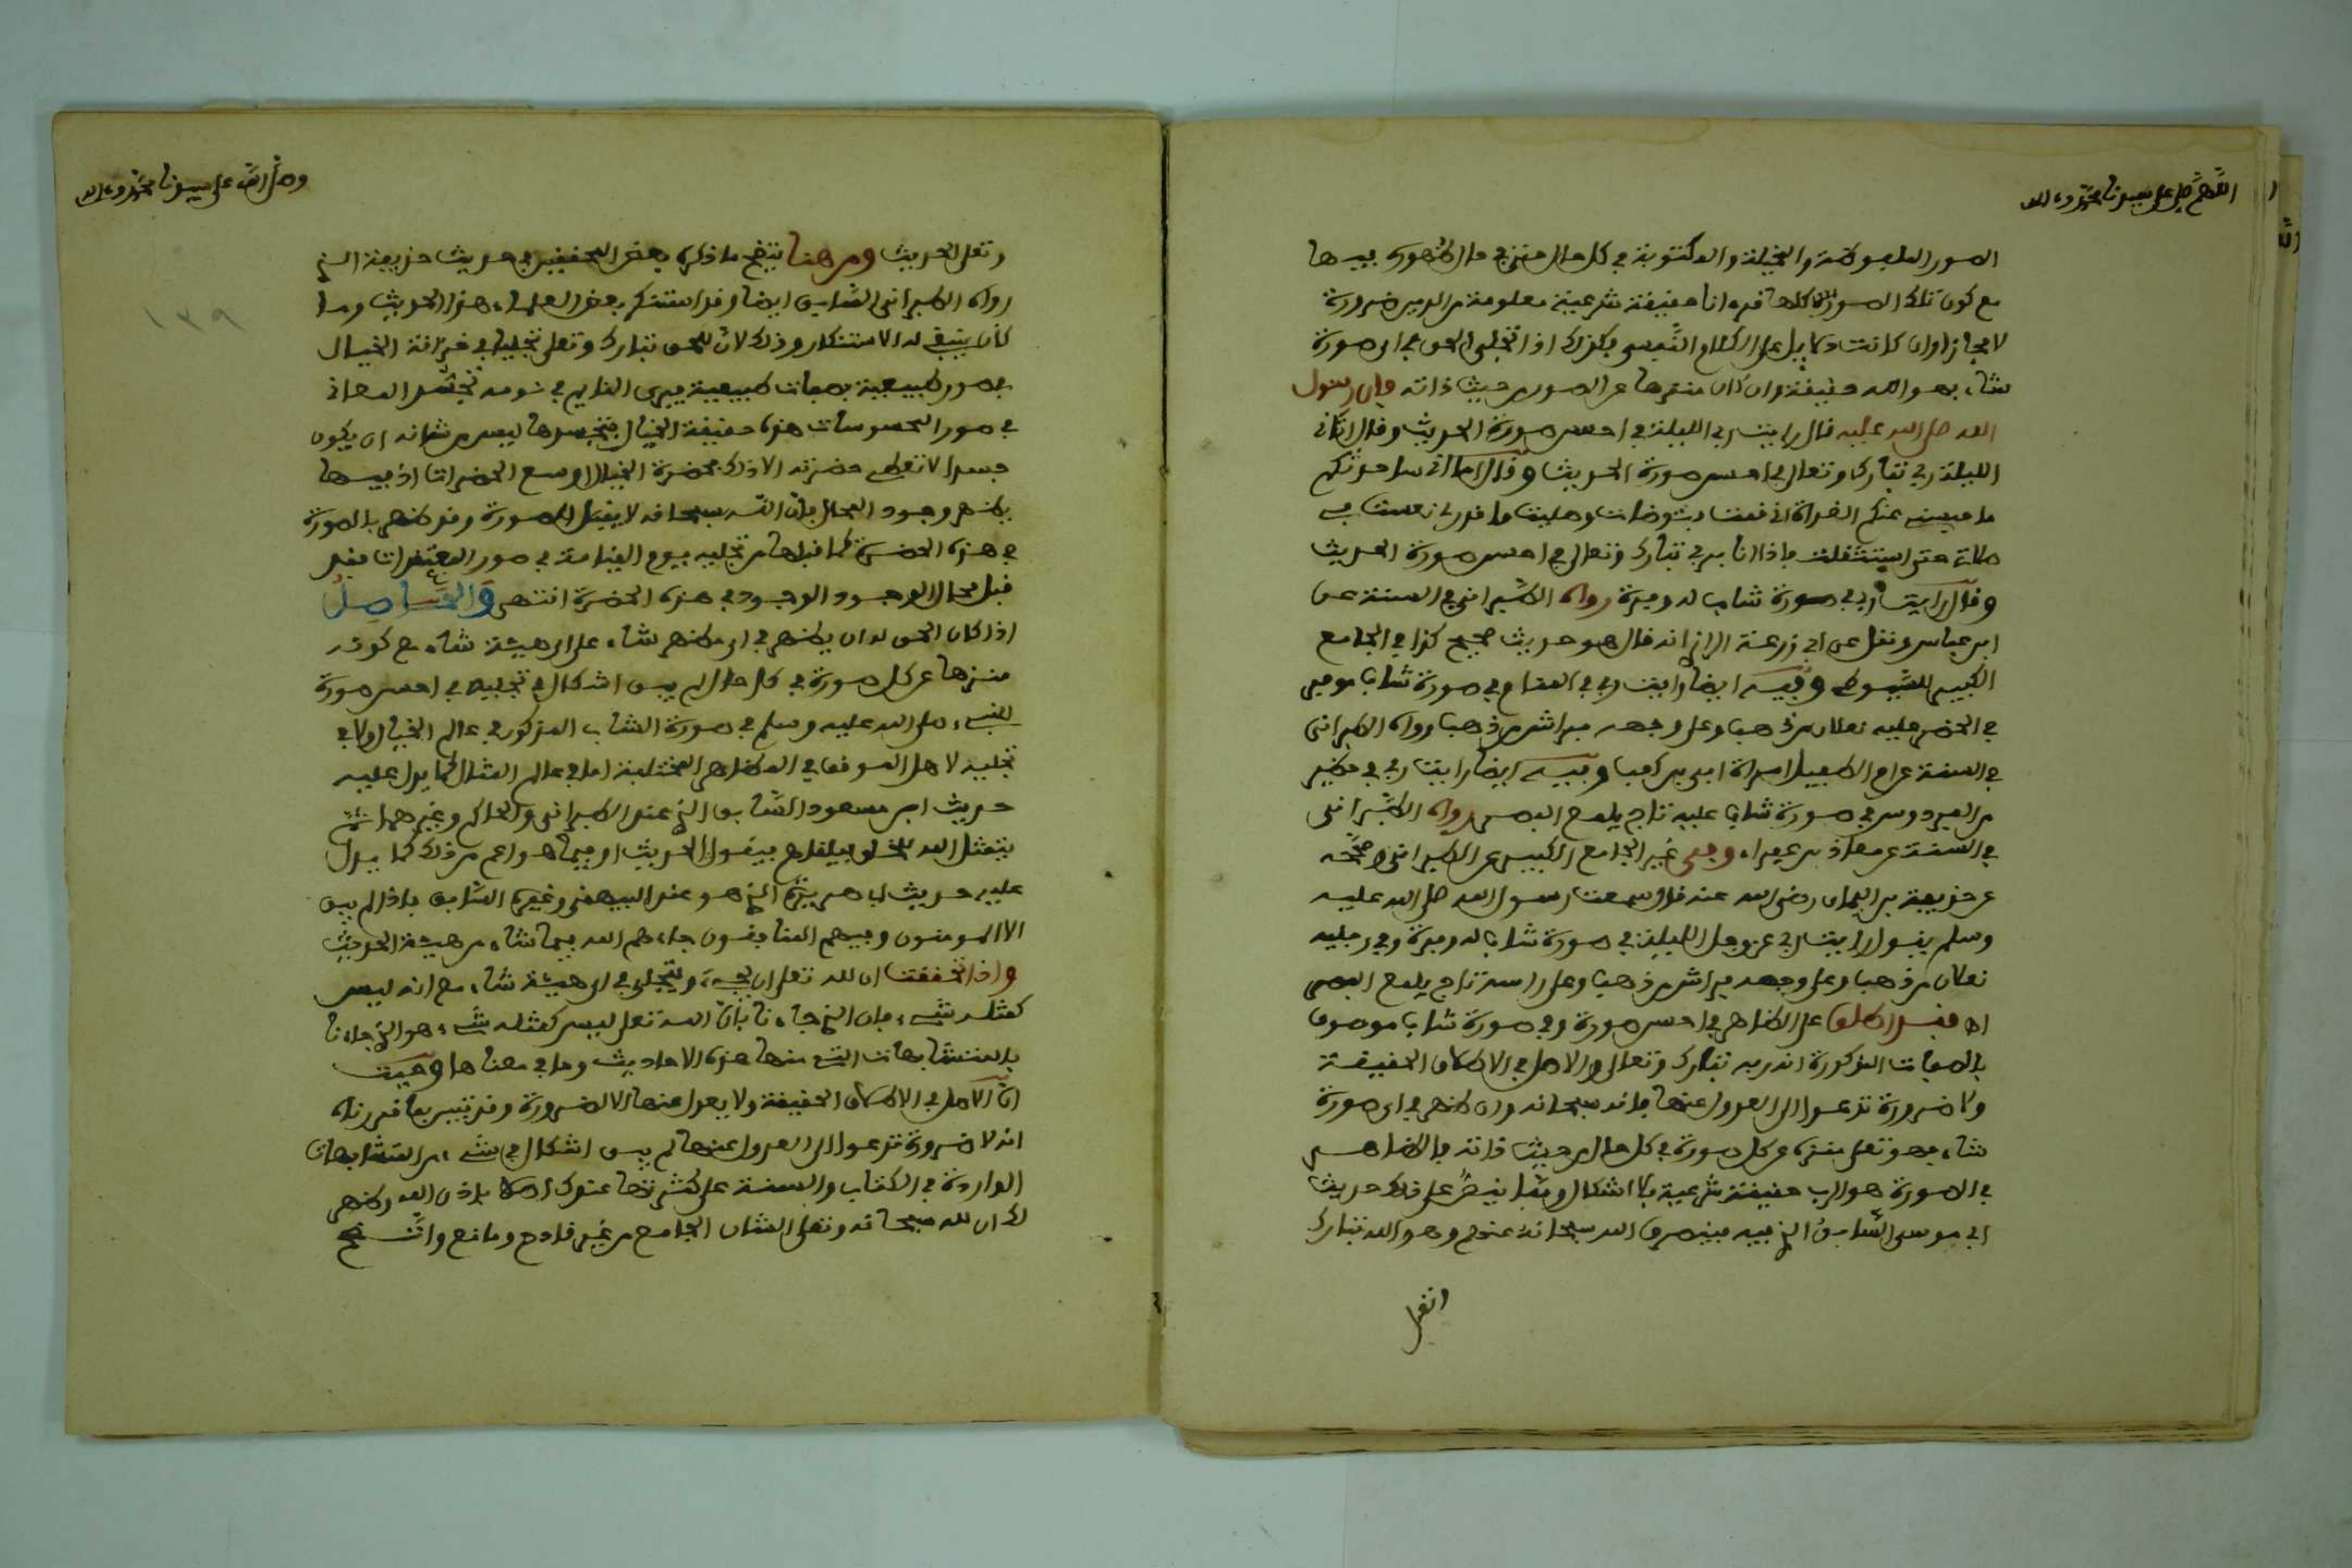 اللهم صل على سيدنا محمد وءاله
الصور الملفوظة والمخيلة والمكتوبة في كل حال منزه في حال ظهوره فيها
مع كون تلك الصور كلها قرءانا حقيقة شرعية معلومة من الدين ضرورة
لا مجازا وان كانت دلايل على الكلام النفسي فكذلك اذا تجلى الحق في اي صورة
شاء فهو الله حقيقة وان كان منزها عن الصور من حيث ذاته فان رسول
الله صلى الله عليه قال رايت ربي الليلة في احسن صورة الحديث وقال اتاني
الليلة ربي تبارك وتعالى في احسن صورة الحديث وقال اما اني ساحدثكم
ما حبسني عنكم الغداة اني قمت فتوضات وصليت ما قدر لي فنعست في
صلاتي حتى استثقلت فاذا انا بربي تبارك وتعالى في احسن صورة الحديث
وقال رايت ربي في صورة شاب له وفرة رواه الطبراني في السنة عن
ابن عباس ونقل عن ابي زرعة الرازي انه قال هو حديث صحيح كذا في الجامع
الكبير للسيوطي وفيه ايضا رايت ربي في المنام في صورة شاب موفر
في الخضر عليه نعلان من ذهب وعلى وجهه فراش من ذهب رواه الطبراني
في السنة عن ام الطفيل امراة ابي بن كعب وفيه ايضا رايت ربي في حظير
من الفردوس في صورة شاب عليه تاج يلمع البصر رواه الطبراني
في السنة عن معاذ بن عفراء وفي غير الجامع الكبير عن الطبراني وصححه
عن حذيفة بن اليمان رضي الله عنه قال سمعت رسول الله صلى الله عليه
وسلم يقول رايت ربي عز وجل الليلة في صورة شاب له وفرة وفي رجليه
نعلان من ذهب وعلى وجهه فراش من ذهب وعلى راسه تاج يلمع البصر
على الظاهر في احسن صورة وفي صورة شاب موصوف
بالصفات المذكورة انه ربه تبارك وتعالى والاصل في الاطلاق الحقيقة
ولا ضرورة تدعوا الى العدول عنها فانه سبحانه وان ظهر في اي صورة
شاء فهو تعالى منزه عن كل صورة في كل حال من حيث ذاته فالظاهر
في الصورة هو الرب حقيقة شرعية بلا اشكال على ذلك حديث
ابي موسى السابق الذي فيه فينصرف الله سبحانه عنهم وهو الله تبارك
وتعلى
وصلى الله على سيدنا محمد وءاله
وتعلى الحديث ومن هنا يتضح ما ذكره بعض المحققين في حديث حذيفة الذي
رواه الطبراني السابق ايضا وقد استنكر بعض العلماء هذا الحديث وما
كان ينبغي له الاستنكار وذلك لان للحق تبارك وتعلى تجليا في خزانة الخيال
في صور طبيعية بصفات طبيعية فيرى النايم في نومه تجسد المعاني
في صور المحسوسات هذه حقيقة الخيال فتجسد ما ليس من شانه ان يكون
جسدا لا تعطي حضرته الا ذلك فحضرة الخيال اوسع الحضرات اذ فيها
يظهر وجود المحال فان الله سبحانه لا يقبل الصورة وقد ظهر بالصورة
في هذه الحضرة كما قبلها من تجليه يوم القيامة في صور المعتقدات فقد
قبل محال الوجود الوجود في هذه الحضرة انتهى والحاصل
اذا كان الحق له ان يظهر في اي مظهر شاء على اي هيئة شاء مع كونه
منزها عن كل صورة في كل حال لم يبق اشكال في تجليه في احسن صورة
للنبيء صلى الله عليه وسلم في صورة الشاب المذكور في عالم الخيال ولا في
تجليه لاهل الموقف في المظاهر المختلفة اما في عالم المثال كما يدل عليه
حديث ابن مسعود السابق الذي عند الطبراني والحاكم وغيرهما ثم
يتمثل الله للخلق فيلقاهم فيقول الحديث او فيما هو اعم من ذلك كما يدل
عليه حديث ابي هريرة الذي هو عند البيهقي وغيره السابق فاذا لم يبق
الا المومنون وفيهم المنافقون جاءهم الله فيما شاء من هيئة الحديث
واذا تحققت ان لله تعلى ان يجيء ويتجلى في اي هيئة شاء مع انه ليس
كمثله شيء فان الذي جاءنا بان الله تعلى ليس كمثله شيء هو الذي جاءنا
بالمتشابهات التي منها هذه الاحاديث وما في معناها وحيث
ان الاصل في الاطلاق الحقيقة ولا يعدل عنها الا لضرورة وقد تبين بما قررناه
انه لا ضرورة تدعوا الى العدول عنها لم يبق اشكال في شيء من المتشابهات
الواردة في الكتاب والسنة على كثرتها عندك اصلا باذن الله وظهر
لك ان لله سبحانه وتعلى الشان الجامع من غير قادح ومانع واتضح
١٣٩